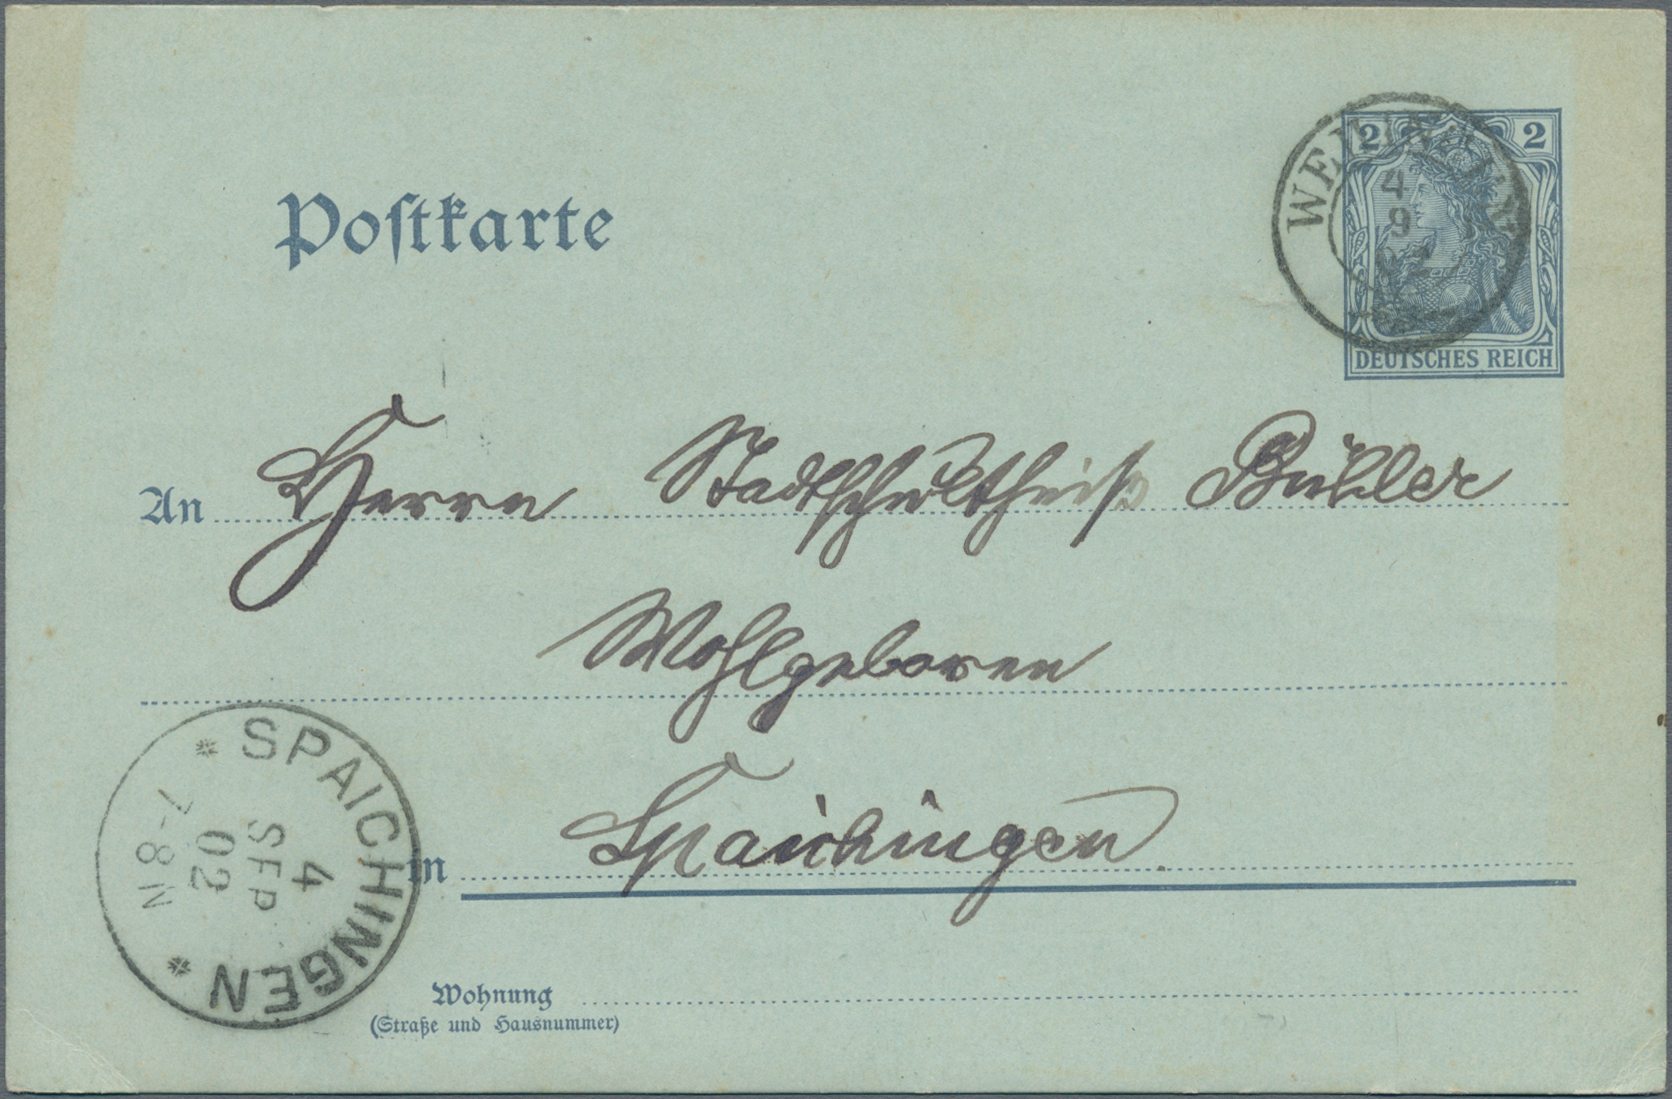 2 2
4
9
02
DEUTSCHES REICH
Postkarte
An Herrn Stadtschultheiß Bühler
Wohlgeboren
in Spaichingen
* SPAICHINGEN *
4
SEP
02
7-8N
Wohnung
(Straße und Hausnummer)